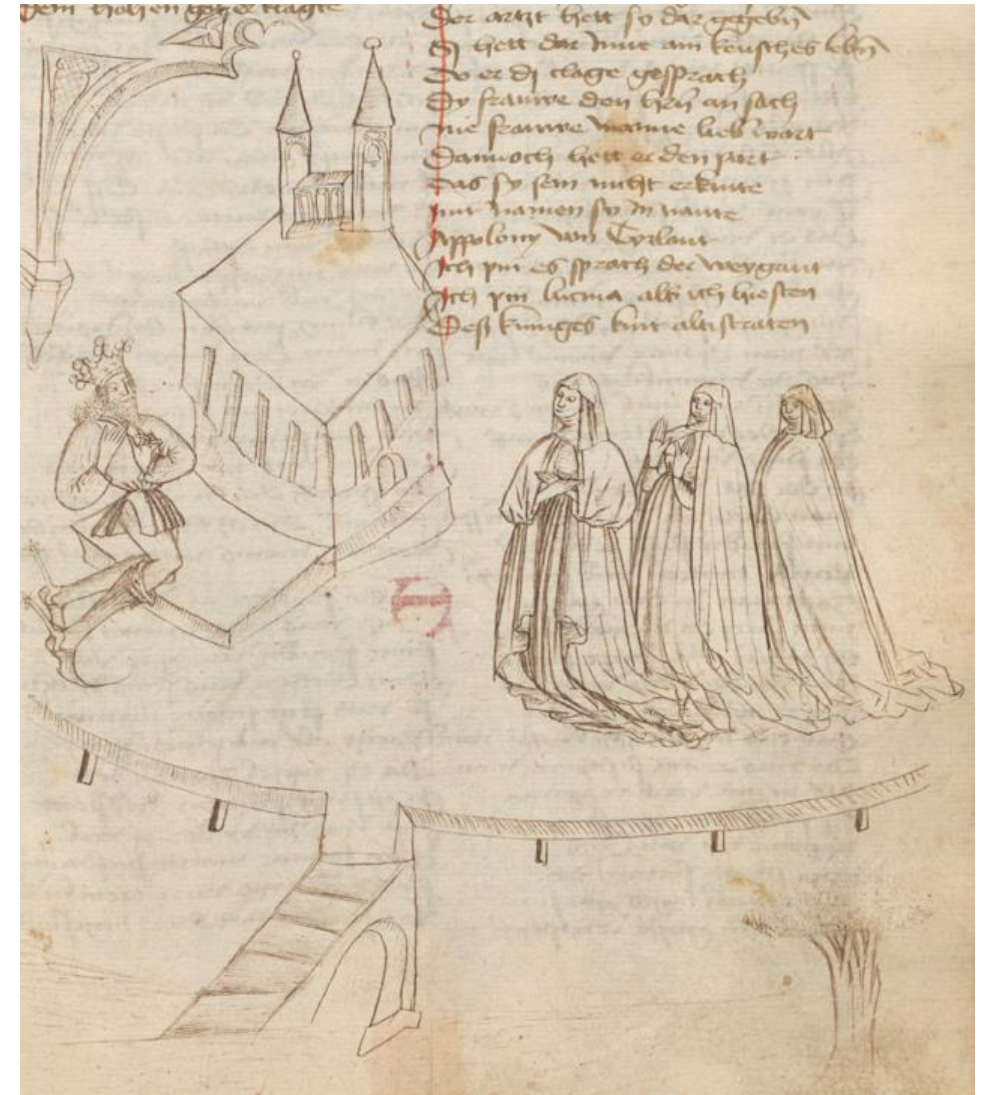 Dem hohen got er clagte
Der artzt hett sy dar gegebñ
Sy hett dar Inne ain keusches lebñ
Do er dj clage gesprach
Dy frauwe den hern an sach
nie frauwe manne lieb wart
Dannoch hett er den part
Das sy sein nicht erkante
mit namen sy In nante
Appolony von Tyrlant
Ich pin es sprach der weygant
Ich pin lucina also ich hiesten
Deß kuniges kint altistraten